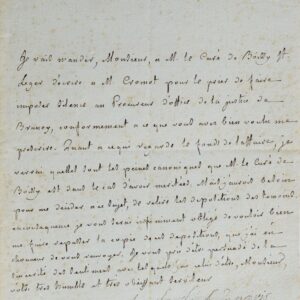 Je vais mander, Monsieur, a M. le Curé de Boissy St.
Leger d'ecrire a M. Cromot pour le prier de faire
imposer silence au Procureur d'office de la justice de
Brunoy, conformement a ce que vous avez bien voulu me
prescrire. Quant a ce qui regarde le fonds de l'affaire, je
verrai quelles sont les peines canoniques que M. le Curé de
Boissy est dans le cas d'avoir meritées. Mais j'aurois besoin
pour me decider, a ce sujet, de relire les depositions des temoins
en consequence je vous serai infiniment obligé de vouloir bien
me faire repasser la copie de ces depositions, que j'ai eu
l'honneur de vous renvoyer. Je vous prie d'etre persuadé de la
sincerité des sentimens avec lesquels j'ai celui d'etre, Monsieur,
votre tres humble et tres obeissant serviteur